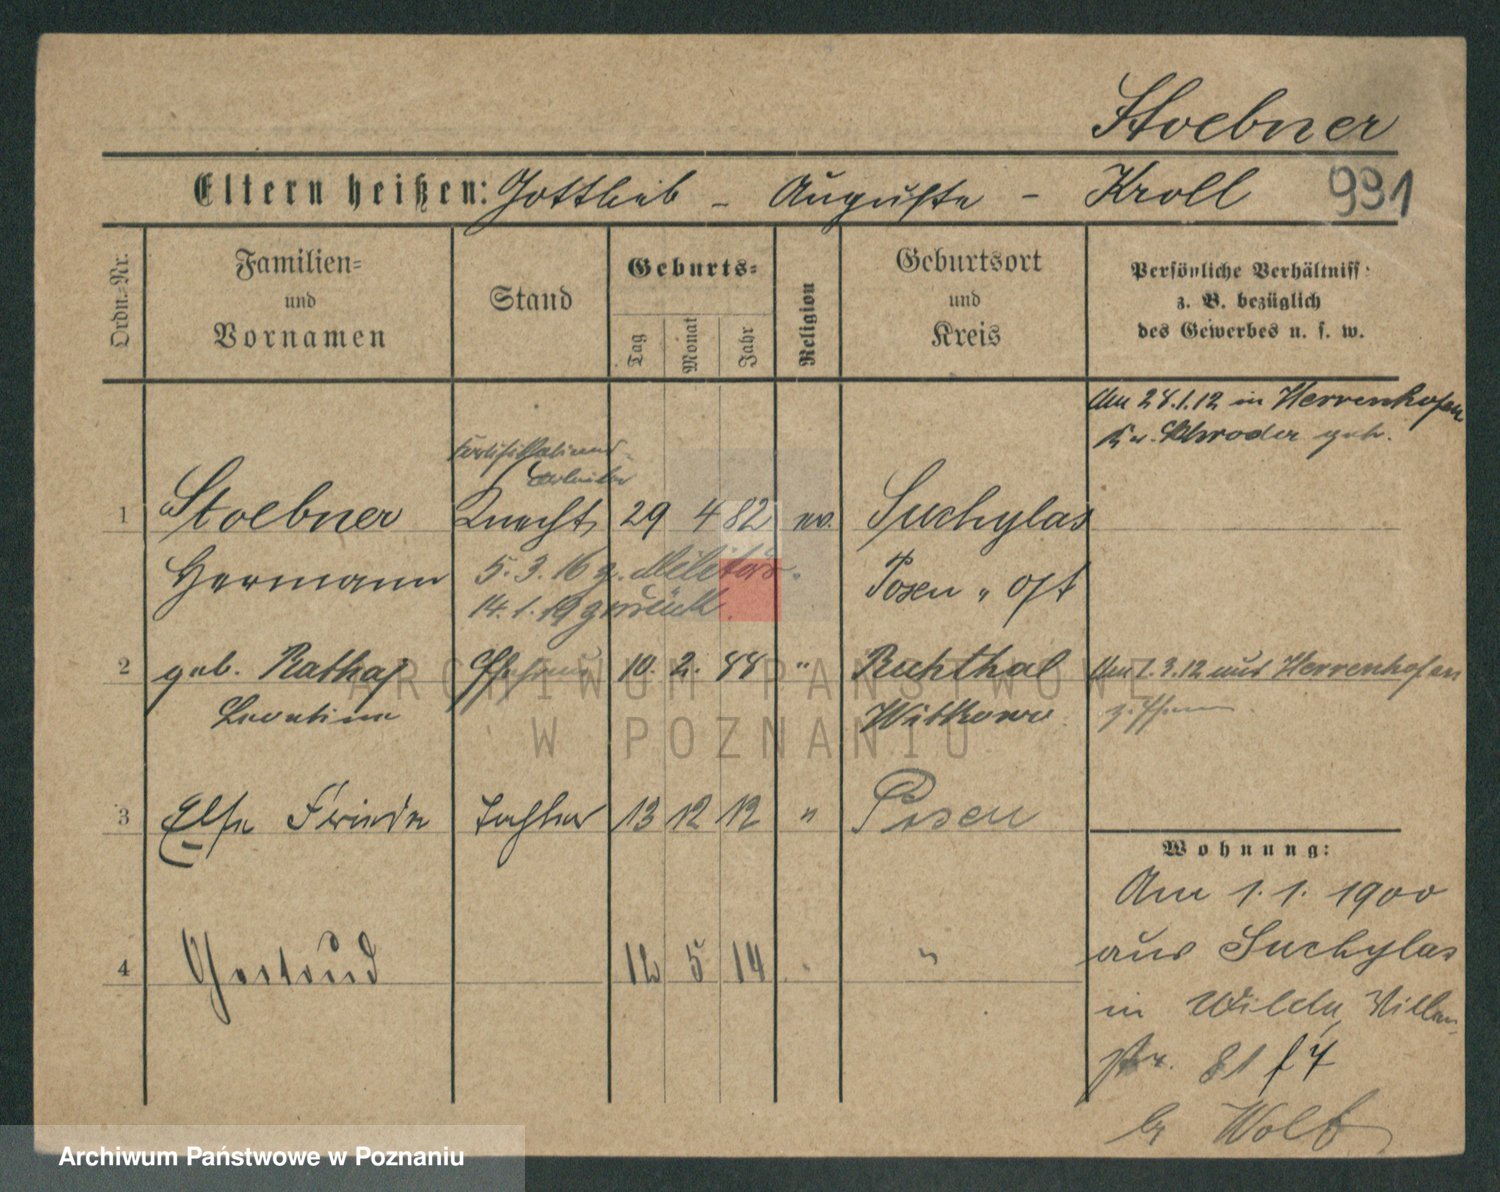 Stoebner
Eltern heißen: Gottlieb - Auguste - Kroll 991
Ordn.-Nr.
Familien-
und
Vornamen
Stand
Geburts-
Tag
Monat
Jahr
Religion
Geburtsort
und
Kreis
Persönliche Verhältniss
z. B. bezüglich
des Gewerbes u. s. w.
Am 24.1.12 in Herrenhofen
Fortifikations-
arbeiter
1 Stoebner Knecht 29 4 82 ev. Suchylas
Hermann 5.3.16 z. Militär.
14.1.19 zurück.
Posen - Ost
2 geb. Rathaj Ehefrau 10. 2. 88 " Ruhthal
Witkowo
Am 1.3.12 aus Herrenhofen
3 Else Frieda Tochter 13 12 12 " Posen
4 Gertrud 12 5 14 " "
Wohnung:
Am 1.1.1900
aus Suchylas
in Wilda, Villen-
str. 81 f 4
b. Wolf
ARCHIWUM PAŃSTWOWE
W POZNANIU
Archiwum Państwowe w Poznaniu